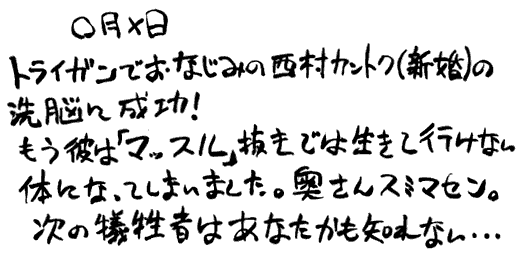 〇月×日
トライガンでおなじみの西村カントク(新婚)の
洗脳に成功!
もう彼は「マッスル」抜きでは生きて行けない
体になってしまいました。奥さんスミマセン。
次の犠牲者はあなたかも知れない…